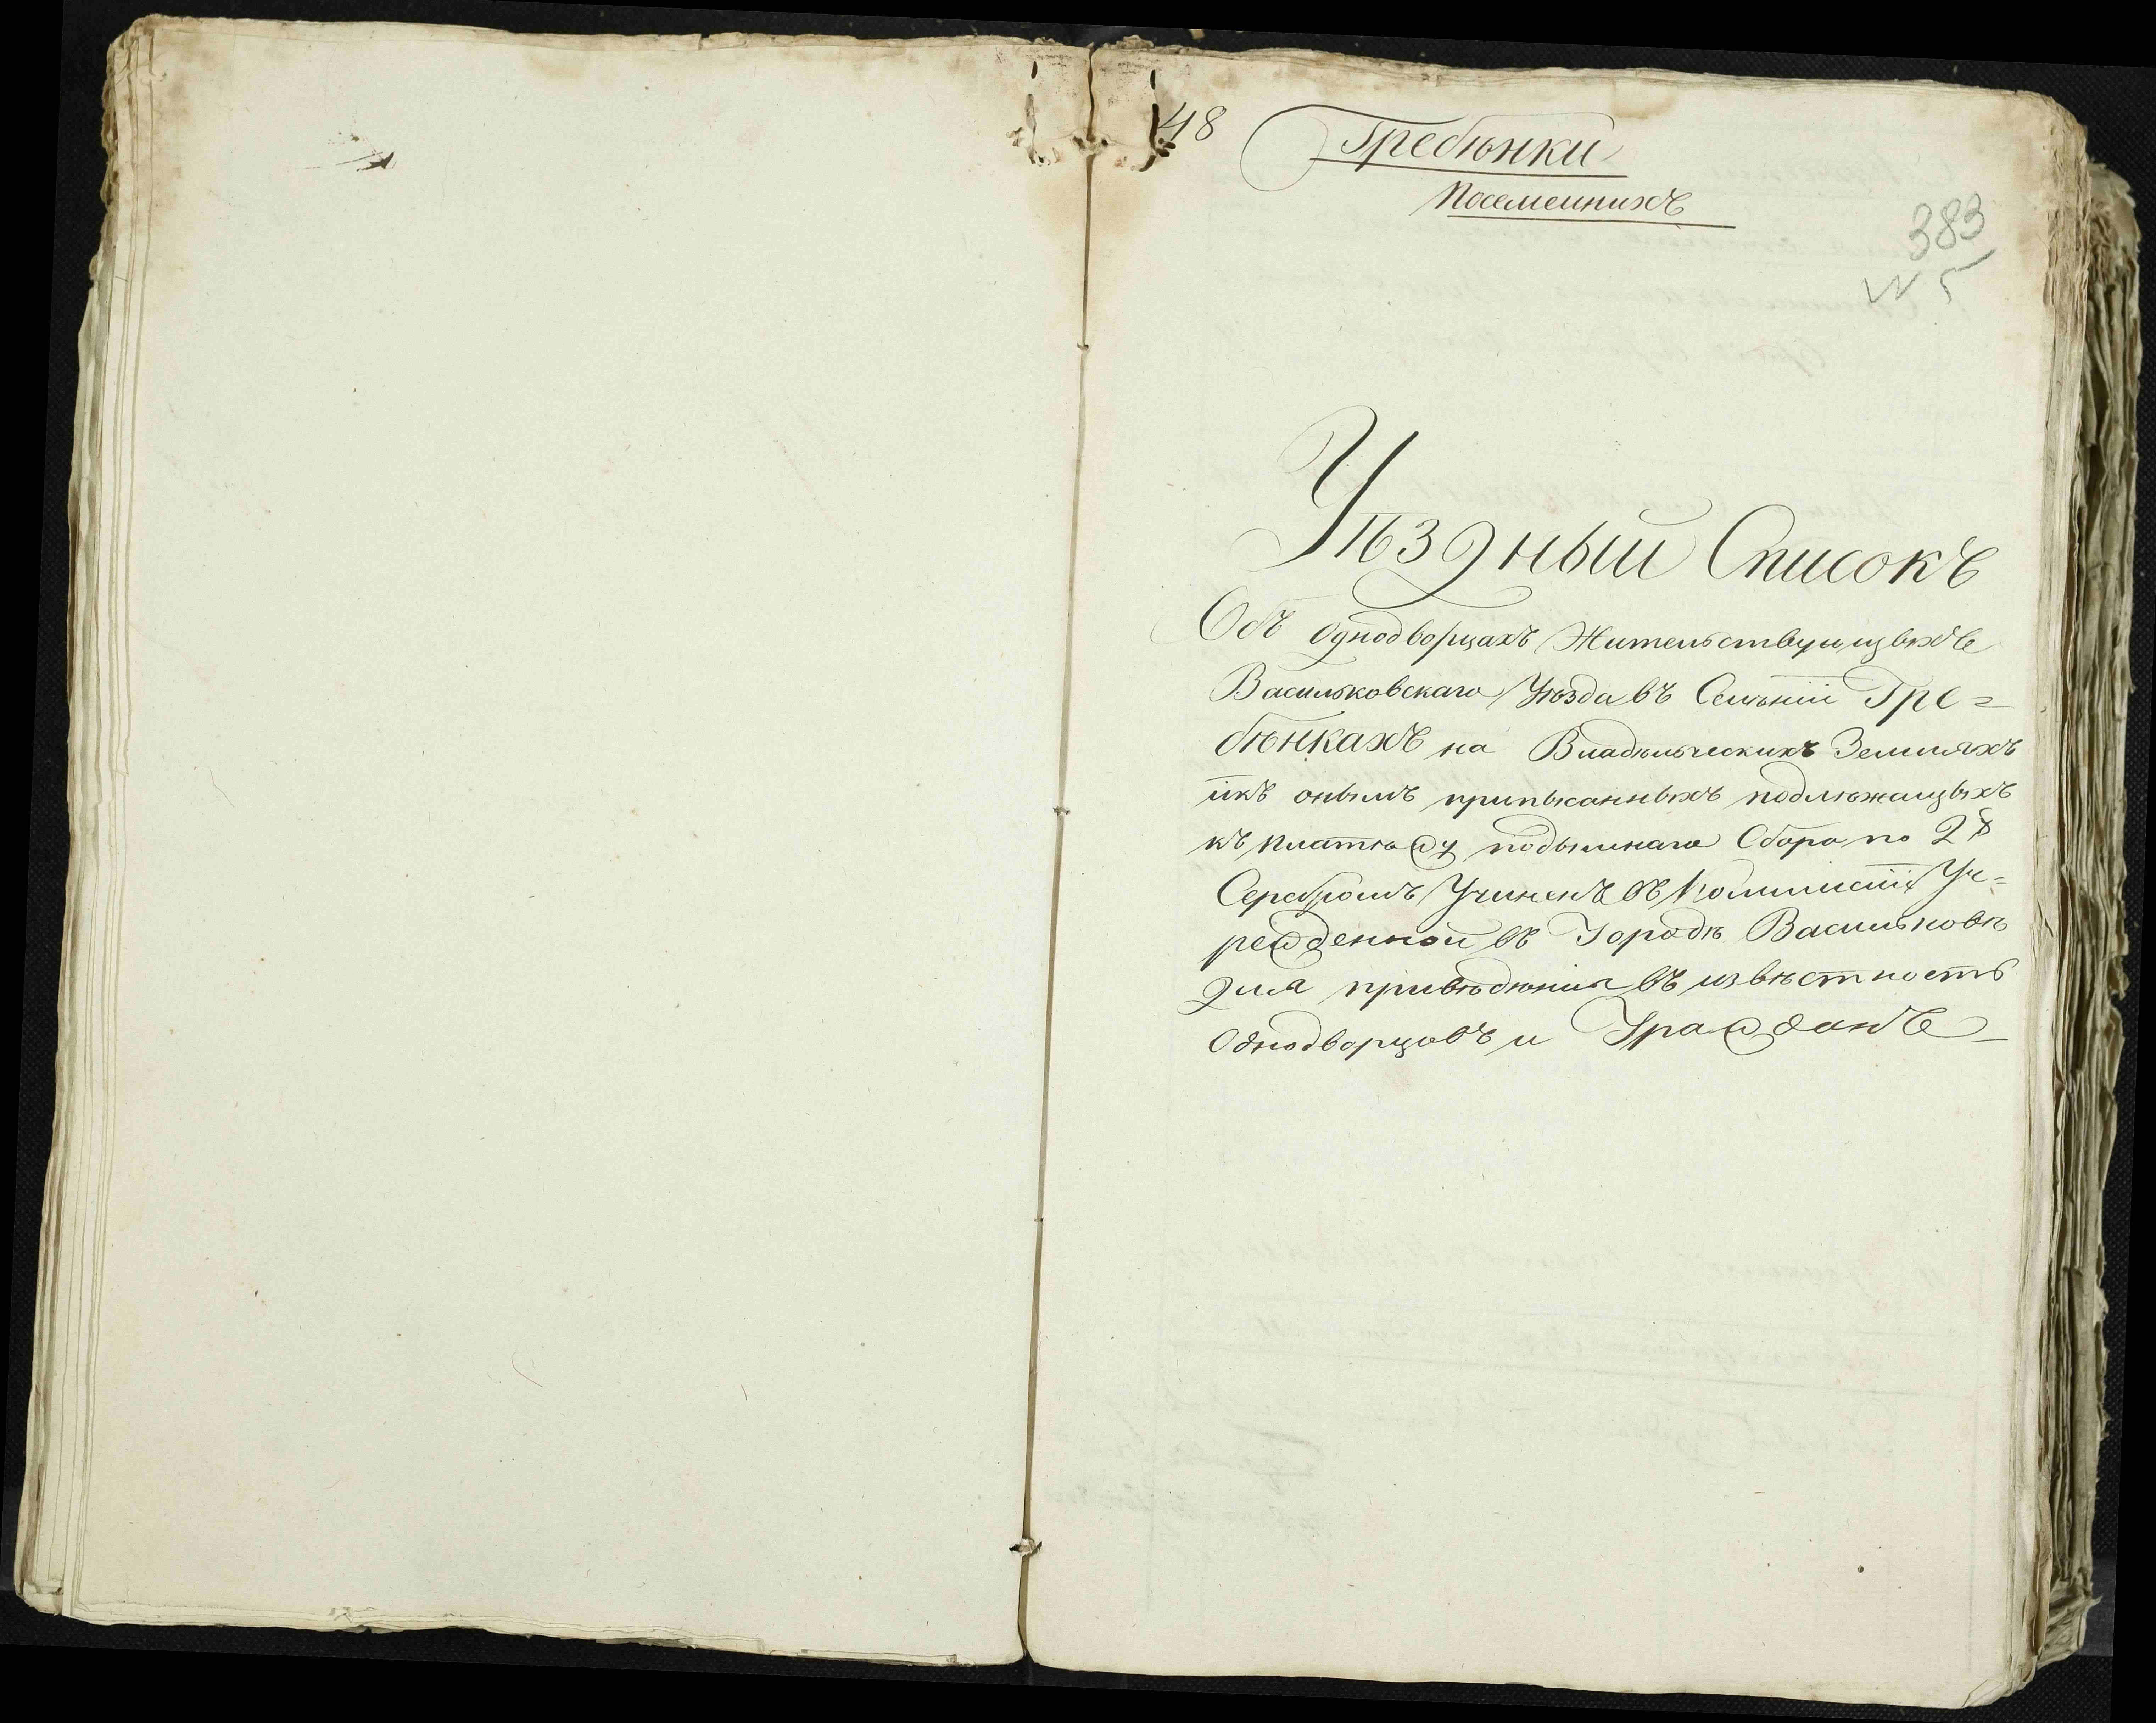 48
Гребѣнки
Посемейнихъ
383
N 5
Уѣздный Списокъ
Объ однодворцахъ Жительствующыхъ
Васильковскаго Уѣзда въ Селѣніи Гре=
бѣнкахъ на Владѣльческихъ Землияхъ
икъ онымъ приписанныхъ подлѣжащыхъ
къ платѣжу подымнаго Сбора по 2
Серебромъ Учиненъ въ Коммисіи Уч=
режденной въ Городѣ Васильковѣ
для привѣдѣнія въ извѣстность
Однодворцовъ и Гражданъ